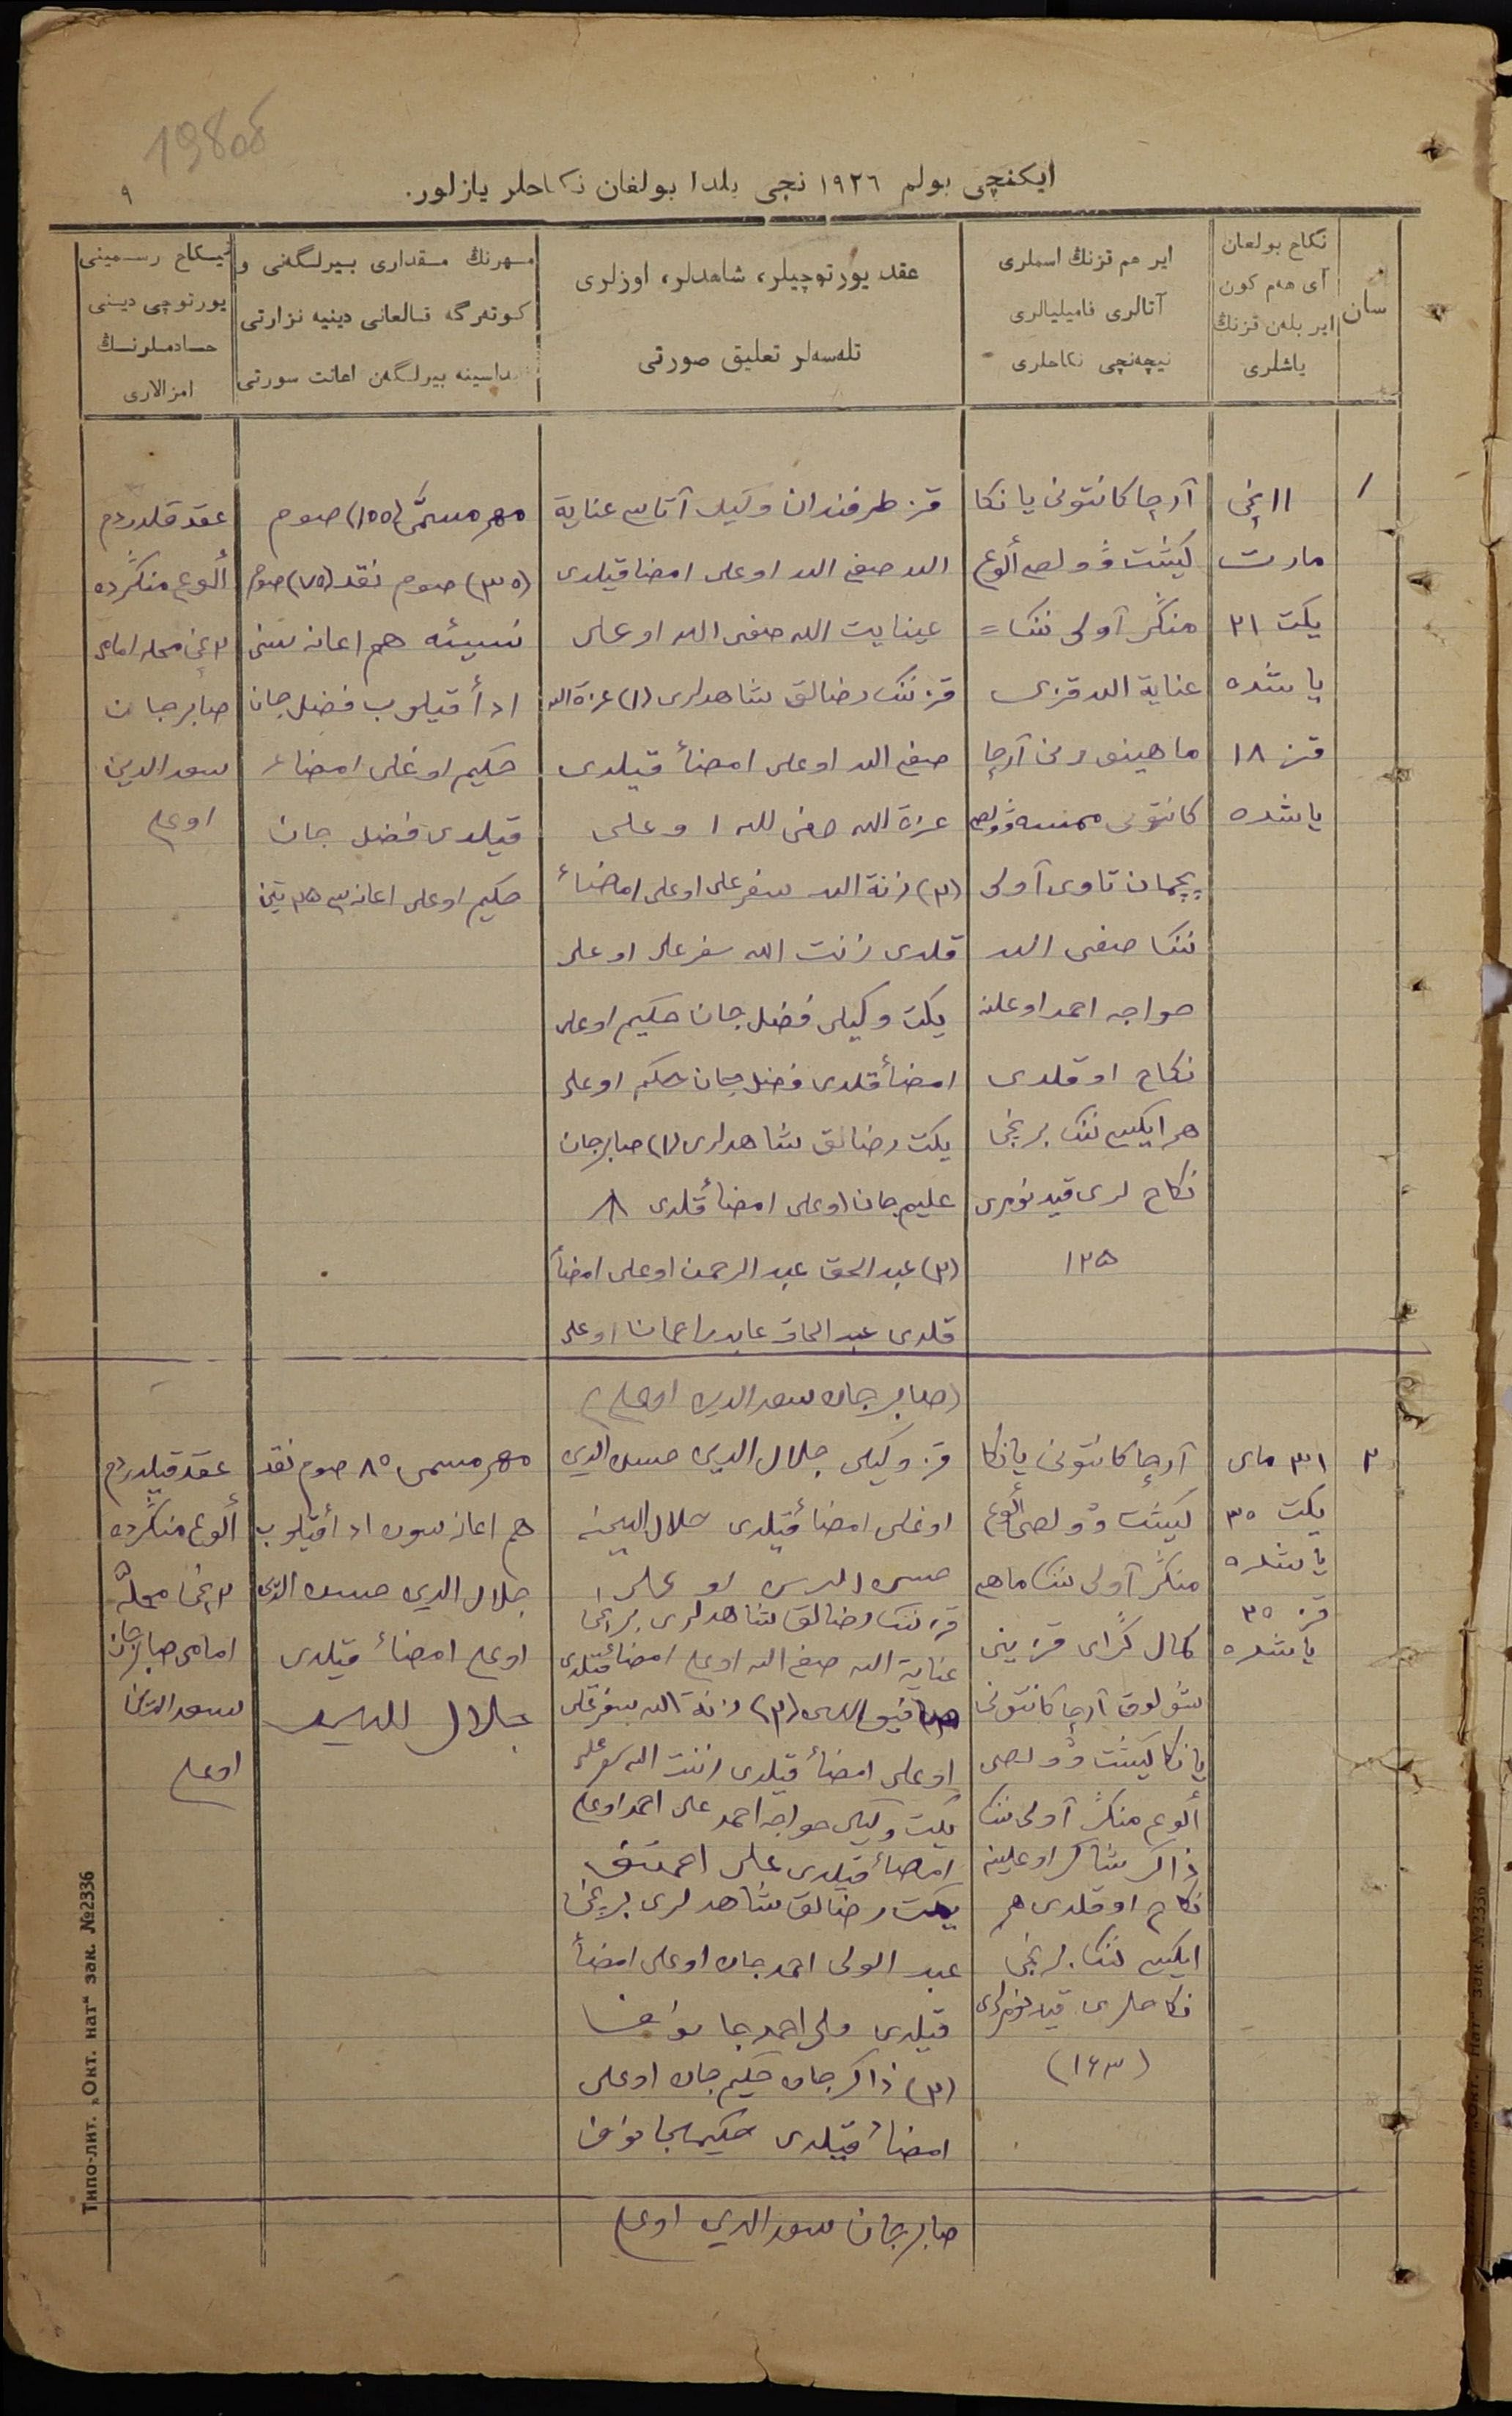 198об
ایكنچی بولم ١٩٢٦ نچی یلدا بولغان نكاحلر یازلور.
٩
سان
نكاح بولغان
آی هەم كون
ایر بلەن قزنڭ
یاشلری
ایر هم قزنڭ اسملری
آتالری فامیلیالری
نیچەنچی نكاحلری
عقد یورتوچیلر، شاهدلر، اوزلری
تلەسەلر تعلیق صورتی
مهرنڭ مقداری بیرلگەنی و
كوتەرگە قالغانی دینیه نزارتی
بیرلگەن اعانت سورتی
نیكاح رسمینی
یورتوچی دینی
خادملرنڭ
امزالاری
١
١١ نچی
مارت
یكت ٢١
یاشده
قز ١٨
یاشده
آرچا كانتونی یانكا
كیشت وولصی ألوع
منگر آولی ننك =
عنایة الله قزی
ماهینور نی آرچا
كانتونی
آولی
ننك صفی الله
خواجه احمد اوعلنه
نكاح اوقلدی
هر ایكیسی ننك برنچی
نكاح لری قید نومری
١٢٥
قز طرفندان وكیل آتاسی عنایة
الله صفی الله اوعلی امضا قیلدی
عینایت الله صفی الله اوعلی
قز ننك رضالق شاهدلری (١) عزة الله
صفی الله اوعلی امضأ قیلدی
عزة الله صفی الله اوعلی
(٢) زنة الله سفرعلی اوعلی امضاء
قلدی زنت الله سفرعلی اوعلی
یكت وكیلی فضل جان حكیم اوعلی
امضأ قلدی فضل جان حكیم اوعلی
یكت رضالق شاهدلری (١) صابرجان
علیم جان اوعلی امضأ قلدی
(٢) عبد الحق عبد الرحمن اوعلی امضأ
قلدی عبد الحاق اوعلی
(صابرجان سعد الدین اوعلی)
مهر مسمّی (١٠٥) صوم
(٣٠) صوم نقد (٧٥) صوم
نسیئه هم اعانه سنی
ادأ قیلوب فضل جان
حكیم اوغلی امضاء
قیلدی فضل جان
حكیم اوعلی
عقد قلدردم
ألوع منگرده
٢ نچی محله امامی
صابرجان
سعد الدین
اوعلی
٢
٣١ مای
یكت ٣٥
یاشده
قز ٢٥
یاشده
آرچا كانتونی یانكا
كیشت وولصی ألوع
منگر آولی ننك ماهی
كمال گرای قزینی
شولوق آرچا كانتونی
یانكا كیشت وولصی
ألوع منگر آولی ننك
ذاكر شاكر اوعلینه
نكاح اوقلدی هر
ایكیسی ننك برنچی
نكاحلری قید نومری
(١٤٣)
قز وكیلی جلال الدین حسن الدین
اوغلی امضأ قیلدی
قز ننك رضالق شاهدلری برنچی
عنایة الله صفی الله اوعلی امضأ قیلدی
(٢) زنة الله سفرعلی
اوعلی امضأ قیلدی زننت الله
یكت وكیلی خواجه احمد علی احمد اوعلی
امضأ قیلدی علی
یكت رضالق شاهدلری برنچی
عبد الولی احمد جان اوعلی امضأ
قیلدی ولی احمد جانوف
(٢) ذاكر جان حكیم جان اوعلی
امضأ قیلدی حكیمجانوف
صابرجان سعد الدین اوعلی
مهر مسمی ٨٥ صوم نقد
هم اعانه سون ادأ قیلوب
جلال الدین حسن الدین
اوعلی امضأ قیلدی
جلال
عقد قیلدردم
ألوع منگرده
٢ نچی محلّه
امامی صابرجان
سعد الدین
اوعلی
Типо-лит. „Окт. нат“ зак. №2336